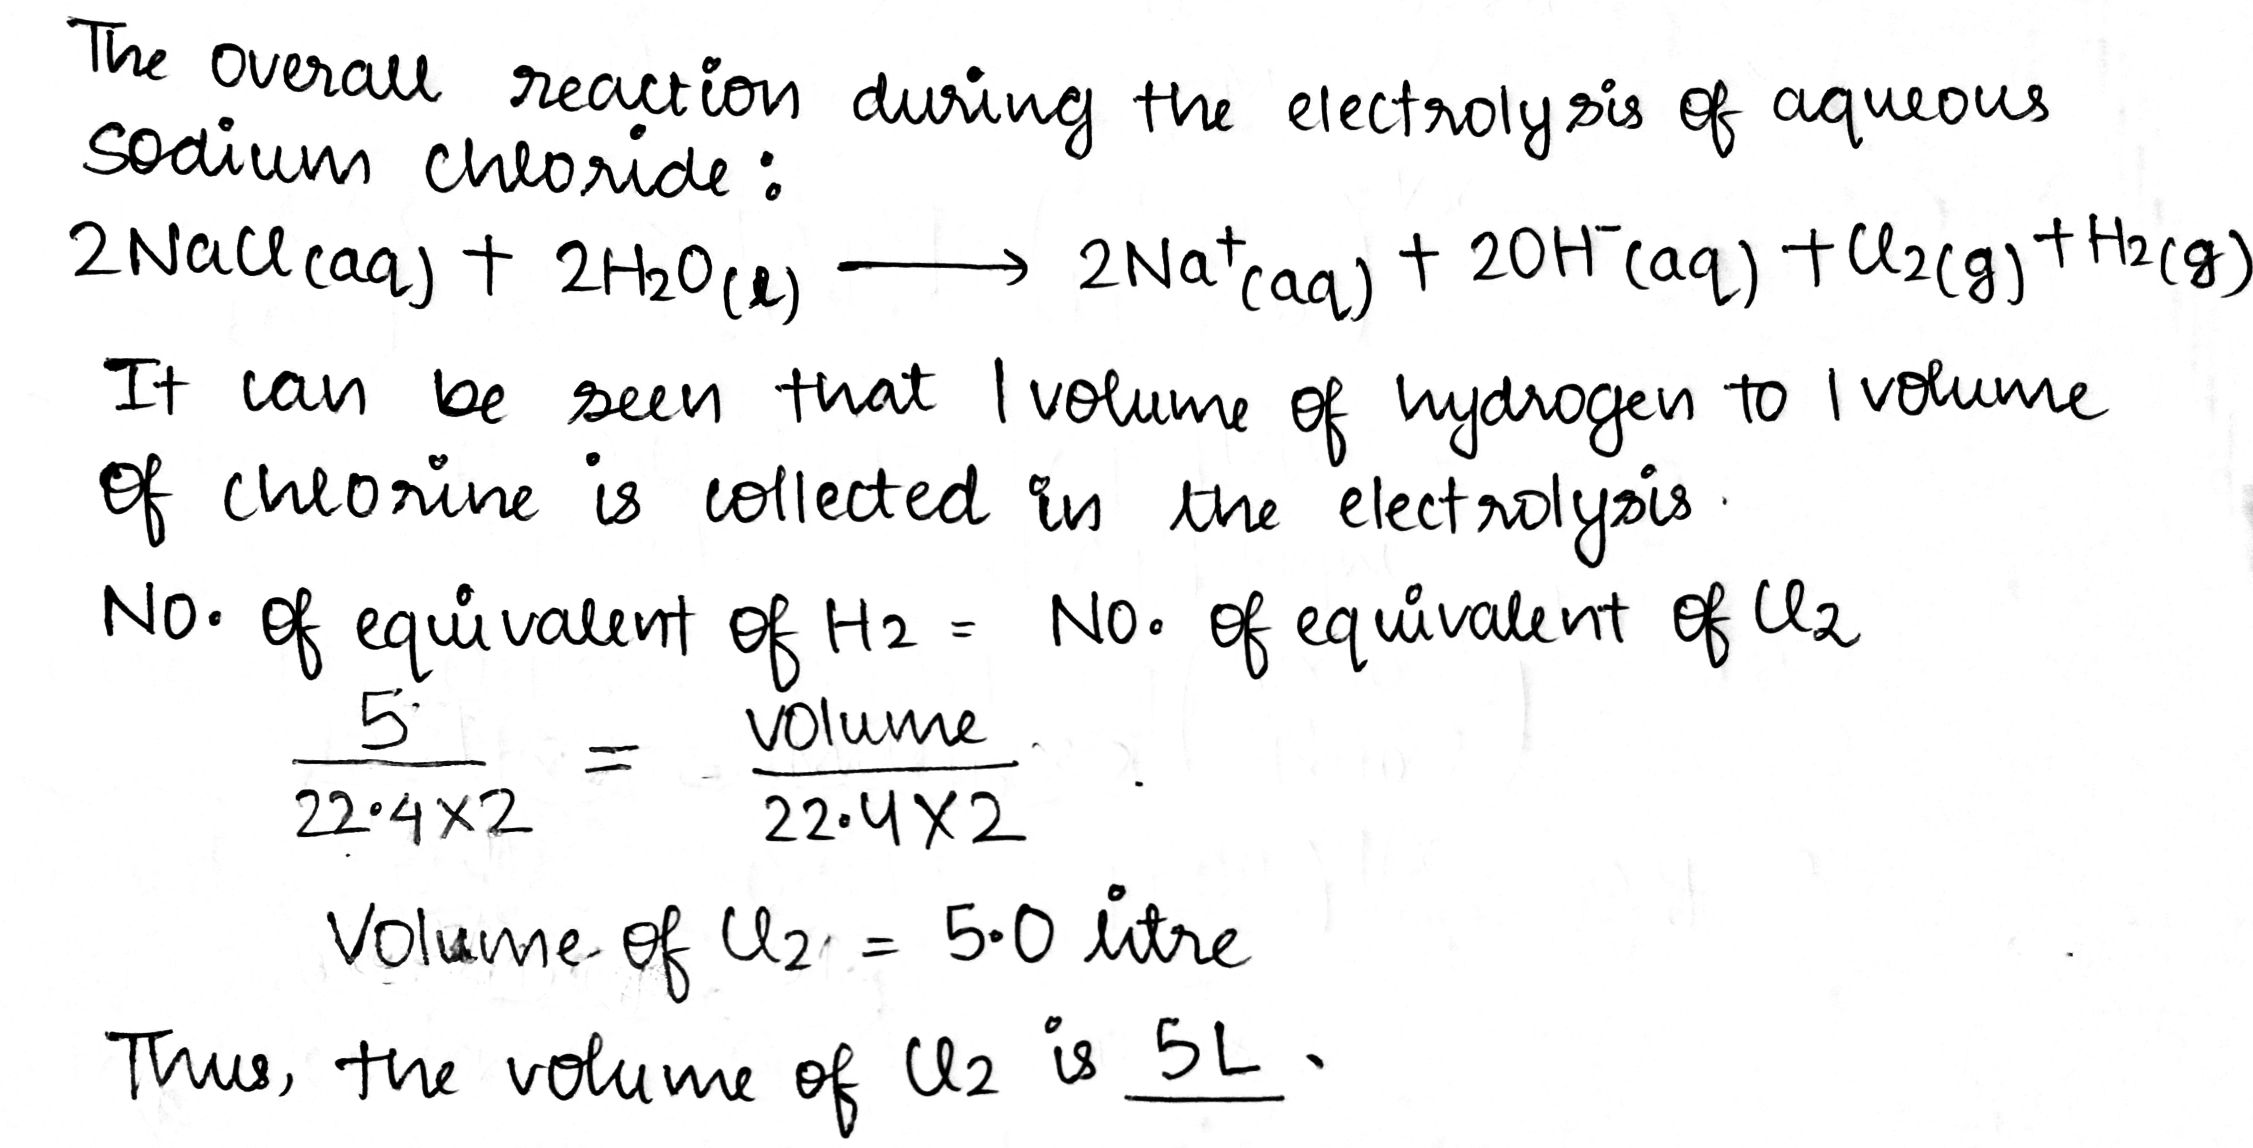 The overall reaction during the electrolysis of aqueous
sodium chloride:
2NaCl(aq) + 2H₂O(l) ⟶ 2Na⁺(aq) + 2OH⁻(aq) + Cl₂(g) + H₂(g)
It can be seen that 1 volume of hydrogen to 1 volume
of chlorine is collected in the electrolysis.
No. of equivalent of H₂ = No. of equivalent of Cl₂
5/22.4×2 = volume/22.4×2
Volume of Cl₂ = 5.0 litre
Thus, the volume of Cl₂ is 5L.